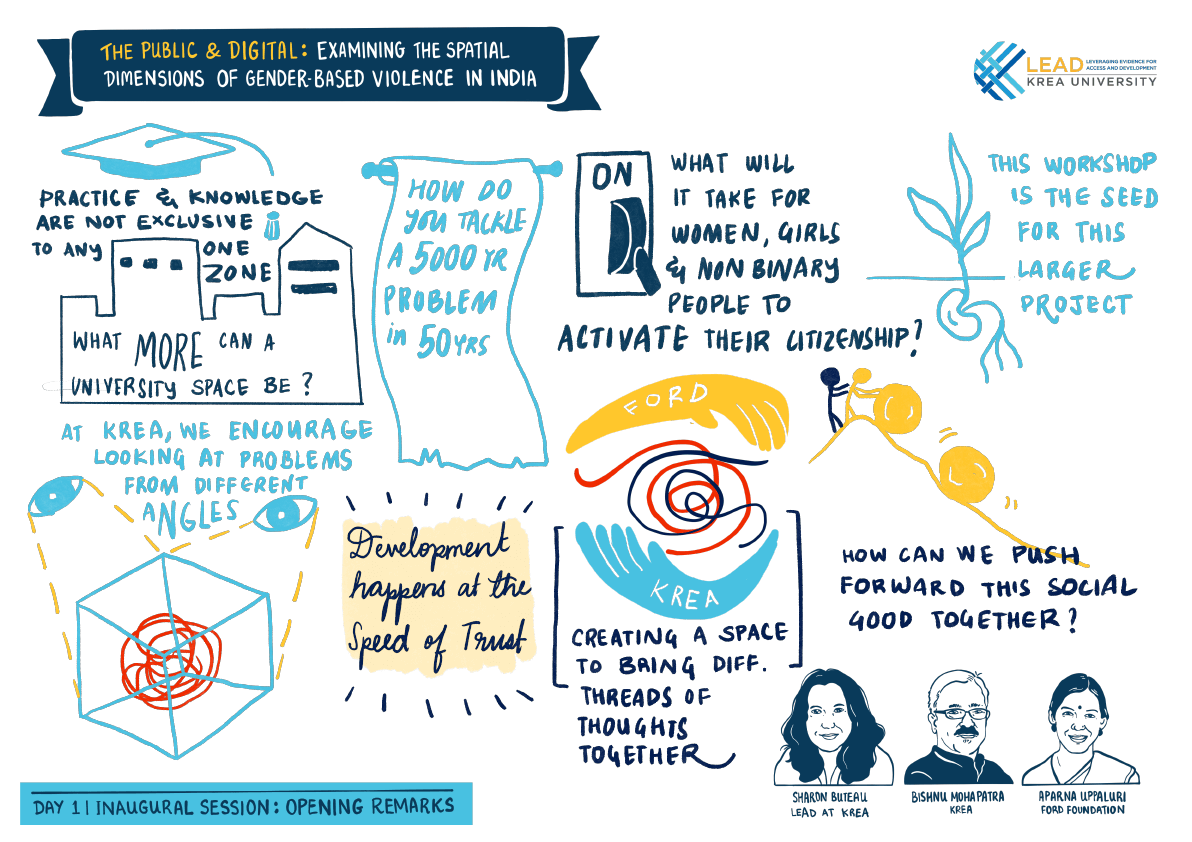 THE PUBLIC & DIGITAL: EXAMINING THE SPATIAL
DIMENSIONS OF GENDER-BASED VIOLENCE IN INDIA
LEAD LEVERAGING EVIDENCE FOR
ACCESS AND DEVELOPMENT
KREA UNIVERSITY
PRACTICE & KNOWLEDGE
ARE NOT EXCLUSIVE
TO ANY ONE
ZONE
WHAT MORE CAN A
UNIVERSITY SPACE BE?
HOW DO
YOU TACKLE
A 5000 YR
PROBLEM
in 50 YRS
ON
WHAT WILL
IT TAKE FOR
WOMEN, GIRLS
& NON BINARY
PEOPLE TO
ACTIVATE THEIR CITIZENSHIP?
THIS WORKSHOP
IS THE SEED
FOR THIS
LARGER
PROJECT
AT KREA, WE ENCOURAGE
LOOKING AT PROBLEMS
FROM DIFFERENT
ANGLES
Development
happens at the
Speed of Trust
FORD
KREA
CREATING A SPACE
TO BRING DIFF.
THREADS OF
THOUGHTS
TOGETHER
HOW CAN WE PUSH
FORWARD THIS SOCIAL
GOOD TOGETHER?
SHARON BUTEAU
LEAD AT KREA
BISHNU MOHAPATRA
KREA
APARNA UPPALURI
FORD FOUNDATION
DAY 1 | INAUGURAL SESSION: OPENING REMARKS